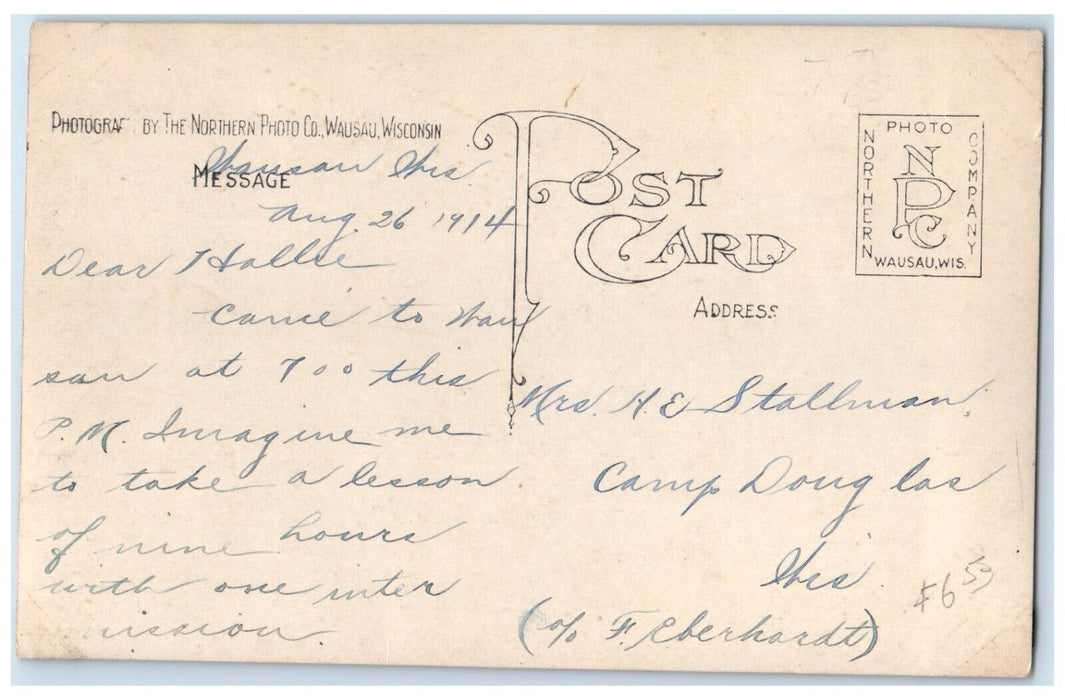 PHOTOGRAF. BY THE NORTHERN PHOTO CO., WAUSAU, WISCONSIN
MESSAGE
Wausau Wis.
Aug. 26 1914
Dear Hallie
Came to Wau
sau at 700 this
P.M. Imagine me
to take a lesson
of nine hours
with one inter
mission.
POST
CARD
ADDRESS
PHOTO
NORTHERN
NPC
COMPANY
WAUSAU, WIS.
Mrs. H. E Stallman.
Camp Douglas
Wis.
(c/o F. Eberhardt)
$6 53